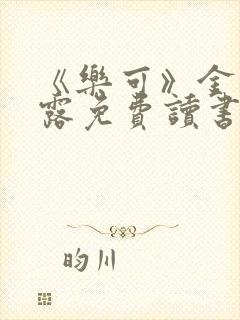 《樂可》金
露免費讀書
昀川